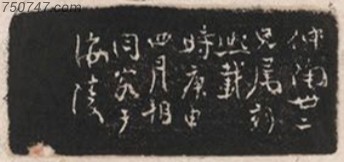 750747.com
仲陶世二
兄属刻
此戴
时庚申
四月相
同客于
海陵